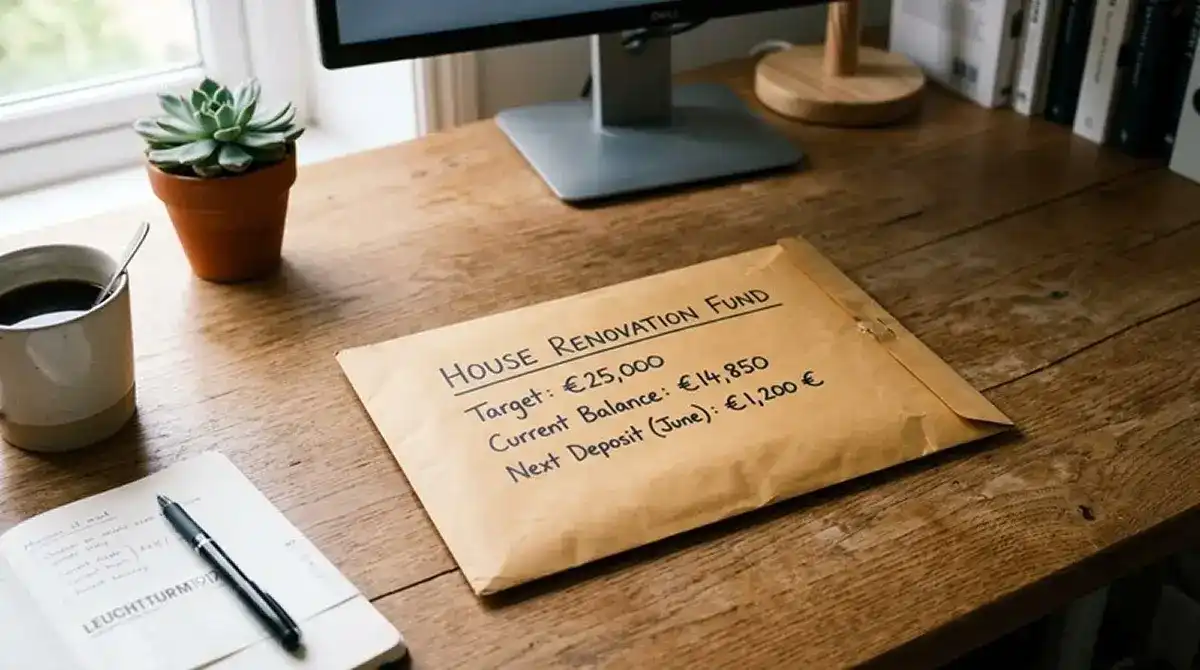 DELL
HOUSE RENOVATION FUND
Target: €25,000
Current Balance: €14,850
Next Deposit (June): €1,200 €
LEUCHTTURM1917